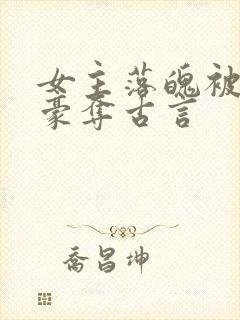 女主落魄被
豪夺古言
乔昌坤